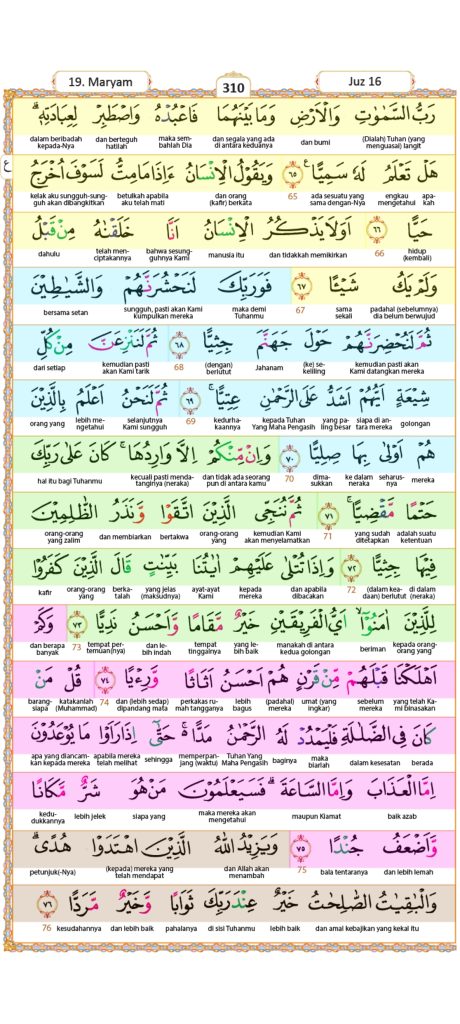 19. Maryam
310
Juz 16
رَبُّ السَّمٰوٰتِ وَالْاَرْضِ وَمَا بَيْنَهُمَا فَاعْبُدْهُ وَاصْطَبِرْ لِعِبَادَتِهٖۗ
(Dialah) Tuhan (yang menguasai) langit dan bumi dan segala yang ada di antara keduanya maka sembahlah Dia dan berteguh hatilah dalam beribadah kepada-Nya
ع
هَلْ تَعْلَمُ لَهٗ سَمِيًّا ࣖ ٦٥ وَيَقُوْلُ الْاِنْسَانُ ءَاِذَا مَا مِتُّ لَسَوْفَ اُخْرَجُ
apakah engkau mengetahui ada sesuatu yang sama dengan-Nya 65 dan orang (kafir) berkata betulkah apabila aku telah mati kelak aku sungguh-sungguh akan dibangkitkan
حَيًّا ٦٦ اَوَلَا يَذْكُرُ الْاِنْسَانُ اَنَّا خَلَقْنٰهُ مِنْ قَبْلُ
hidup (kembali) 66 dan tidakkah memikirkan manusia itu bahwa sesungguhnya Kami telah menciptakannya dahulu
وَلَمْ يَكُ شَيْـًٔا ٦٧ فَوَرَبِّكَ لَنَحْشُرَنَّهُمْ وَالشَّيٰطِيْنَ
padahal (sebelumnya) dia belum berwujud sama sekali 67 maka demi Tuhanmu sungguh, pasti akan Kami kumpulkan mereka bersama setan
ثُمَّ لَنُحْضِرَنَّهُمْ حَوْلَ جَهَنَّمَ جِثِيًّا ٦٨ ثُمَّ لَنَنْزِعَنَّ مِنْ كُلِّ
kemudian pasti akan Kami datangkan mereka (ke) sekeliling Jahanam (dengan) berlutut 68 kemudian pasti akan Kami tarik dari setiap
شِيْعَةٍ اَيُّهُمْ اَشَدُّ عَلَى الرَّحْمٰنِ عِتِيًّا ٦٩ ثُمَّ لَنَحْنُ اَعْلَمُ بِالَّذِيْنَ
golongan siapa di antara mereka yang paling besar kepada Tuhan Yang Maha Pengasih kedurhakaannya 69 selanjutnya Kami sungguh lebih mengetahui orang yang
هُمْ اَوْلٰى بِهَا صِلِيًّا ٧٠ وَاِنْ مِّنْكُمْ اِلَّا وَارِدُهَا ۚ كَانَ عَلٰى رَبِّكَ
mereka seharusnya ke dalam neraka dimasukkan 70 dan tidak ada seorang pun di antara kamu kecuali pasti mendatanginya (neraka) hal itu bagi Tuhanmu
حَتْمًا مَّقْضِيًّا ۚ ٧١ ثُمَّ نُنَجِّى الَّذِيْنَ اتَّقَوْا وَّنَذَرُ الظّٰلِمِيْنَ
adalah suatu ketentuan yang sudah ditetapkan 71 kemudian Kami akan menyelamatkan orang-orang yang bertakwa dan membiarkan orang-orang yang zalim
فِيْهَا جِثِيًّا ٧٢ وَاِذَا تُتْلٰى عَلَيْهِمْ اٰيٰتُنَا بَيِّنٰتٍ قَالَ الَّذِيْنَ كَفَرُوْا
di dalam (neraka) (dalam keadaan) berlutut 72 dan apabila dibacakan kepada mereka ayat-ayat Kami yang jelas (maksudnya) berkatalah orang-orang yang kafir
لِلَّذِيْنَ اٰمَنُوْٓا ۙ اَيُّ الْفَرِيْقَيْنِ خَيْرٌ مَّقَامًا وَّاَحْسَنُ نَدِيًّا ٧٣ وَكَمْ
kepada orang-orang yang beriman manakah di antara kedua golongan yang lebih baik tempat tinggalnya dan lebih indah tempat pertemuan(nya) 73 dan berapa banyak
اَهْلَكْنَا قَبْلَهُمْ مِّنْ قَرْنٍ هُمْ اَحْسَنُ اَثَاثًا وَّرِءْيًا ٧٤ قُلْ مَنْ
yang telah Kami binasakan sebelum mereka umat (yang ingkar) (padahal) mereka lebih bagus perkakas rumah tangganya dan (lebih sedap) dipandang mata 74 katakanlah (Muhammad) barangsiapa
كَانَ فِى الضَّلٰلَةِ فَلْيَمْدُدْ لَهُ الرَّحْمٰنُ مَدًّا ۚ حَتّٰىٓ اِذَا رَاَوْا مَا يُوْعَدُوْنَ
berada dalam kesesatan maka biarlah baginya Tuhan Yang Maha Pengasih memperpanjang (waktu) sehingga apabila mereka telah melihat apa yang diancamkan kepada mereka
اِمَّا الْعَذَابَ وَاِمَّا السَّاعَةَ ۗ فَسَيَعْلَمُوْنَ مَنْ هُوَ شَرٌّ مَّكَانًا
baik azab maupun Kiamat maka mereka akan mengetahui siapa yang lebih jelek kedudukannya
وَّاَضْعَفُ جُنْدًا ٧٥ وَيَزِيْدُ اللّٰهُ الَّذِيْنَ اهْتَدَوْا هُدًى ۗ
dan lebih lemah bala tentaranya 75 dan Allah akan menambah (kepada) mereka yang telah mendapat petunjuk(-Nya)
وَالْبٰقِيٰتُ الصّٰلِحٰتُ خَيْرٌ عِنْدَ رَبِّكَ ثَوَابًا وَّخَيْرٌ مَّرَدًّا ٧٦
dan amal kebajikan yang kekal itu lebih baik di sisi Tuhanmu pahalanya dan lebih baik kesudahannya 76